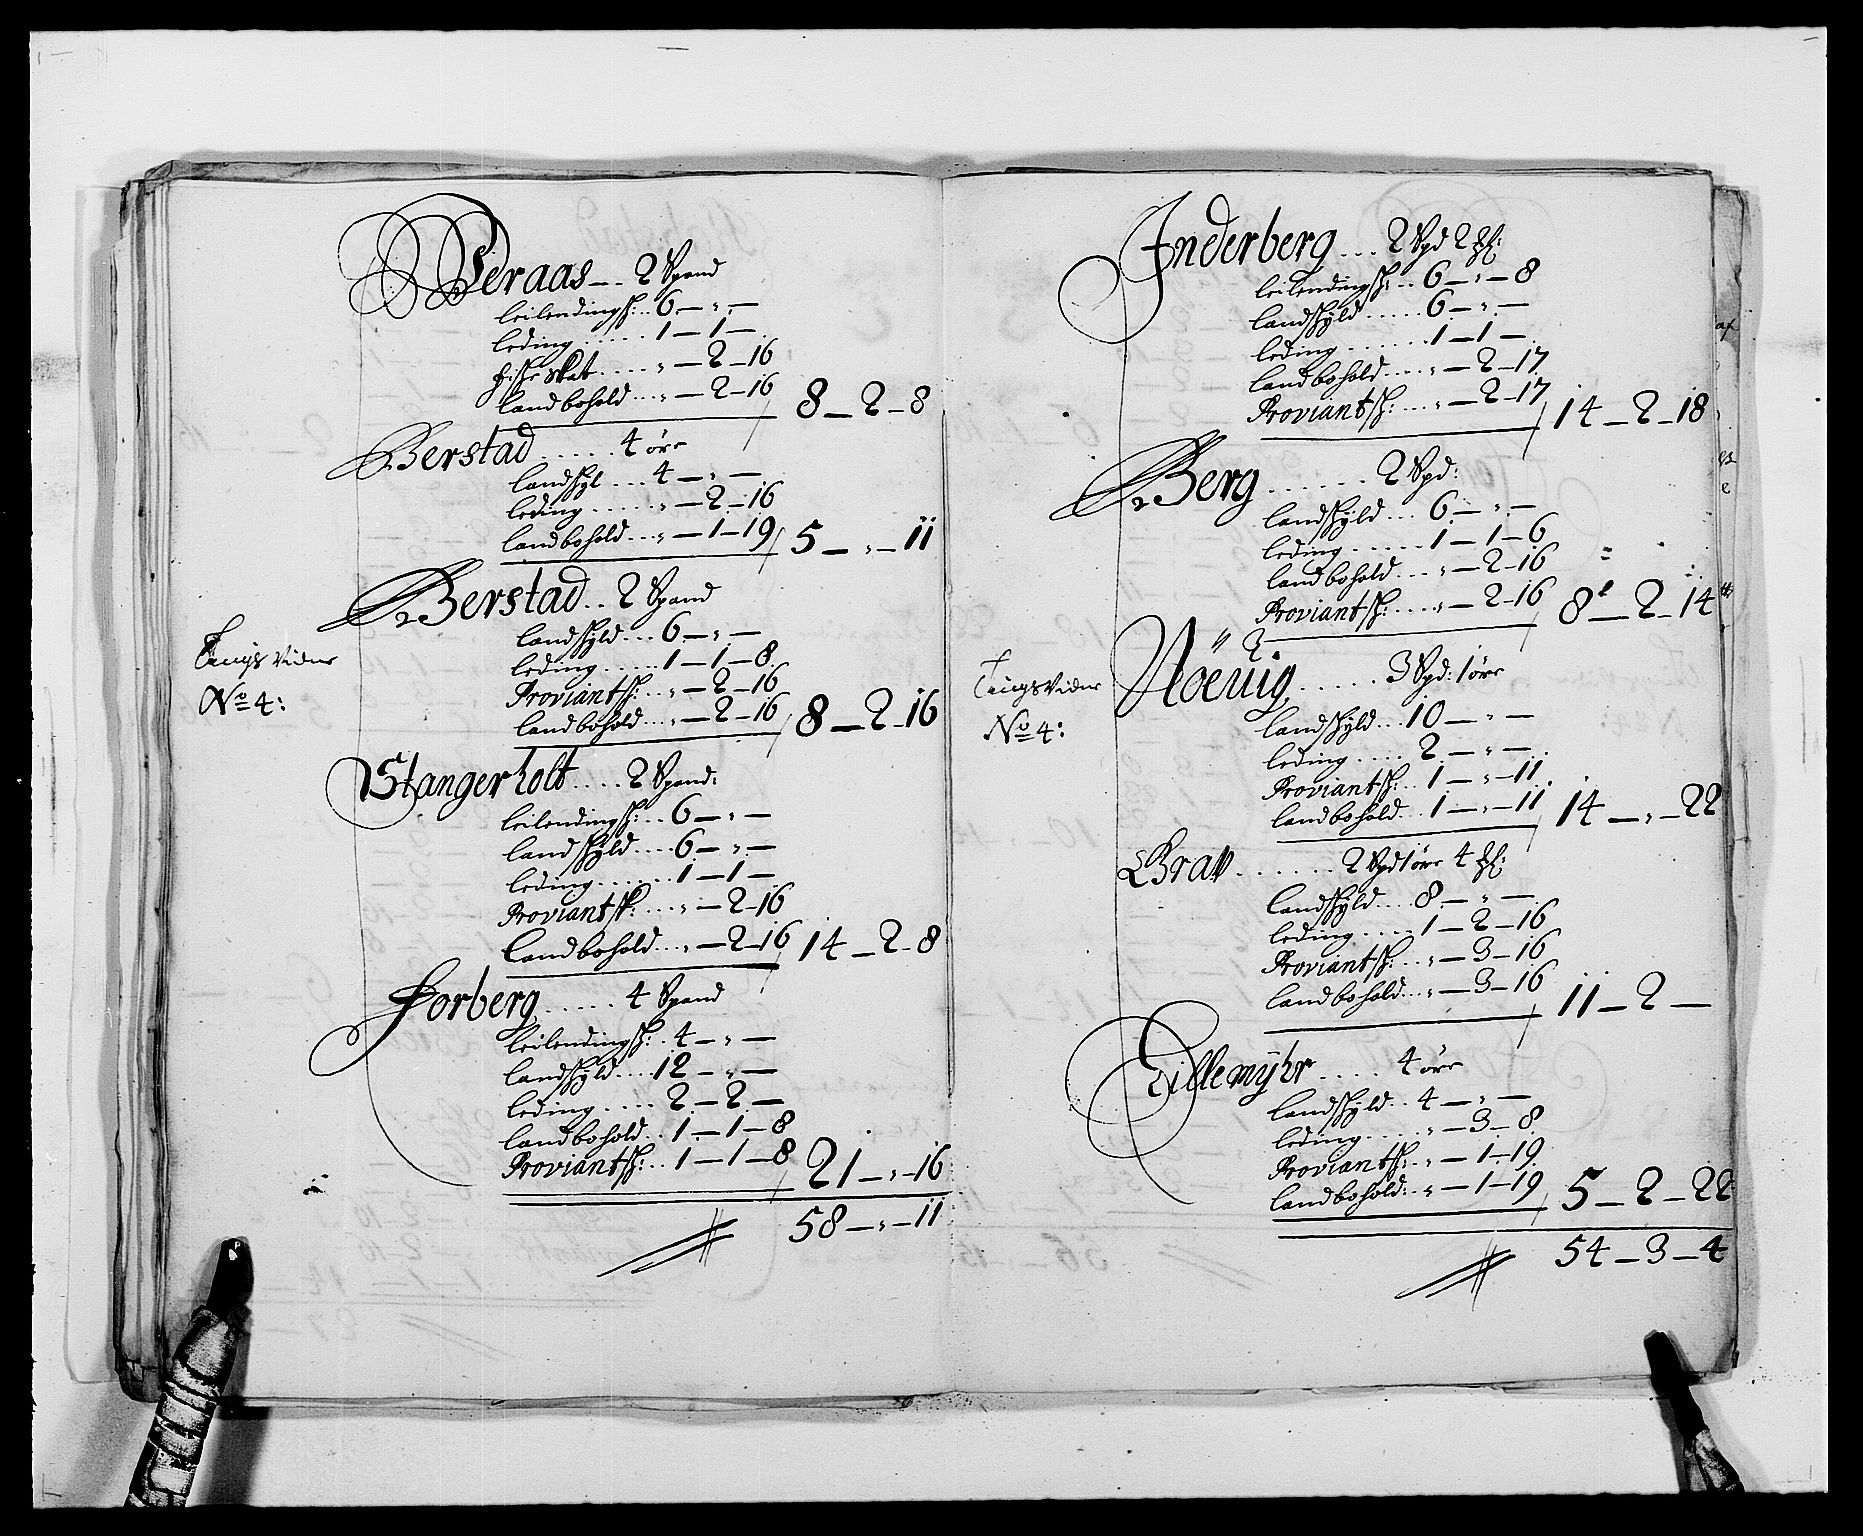 Peraas .. 2 Spand
leilendingsh: .. 6 — " —
leding ..... 1 — 1 —
fishe skat .... " — 2 — 16
landbohold ... " — 2 — 16 8 — 2 — 8
Berstad ..... 4 øre
landshyl ... 4 — " —
leding ..... " — 2 — 16
landbohold ... " — 1 — 19 5 — " — 11
Berstad .. 2 Spand
landshyld ... 6 — " —
leding ..... 1 — 1 — 8
Tings Vidne
Proviantsh: .. " — 2 — 16
No 4:
landbohold ... " — 2 — 16 8 — 2 — 16
Stangerholt .... 2 Spand:
leilendingsh: .. 6 — " —
landshyld .... 6 — " —
leding ...... 1 — 1 —
Proviantsh: ... " — 2 — 16
landbohold ... " — 2 — 16 14 — 2 — 8
Forberg ..... 4 Spand
leilendingsh: . 4 — " —
landshyld .... 12 — " —
leding .... 2 — 2 —
landbohold .. 1 — 1 — 8
Proviantsh: .. 1 — 1 — 8 21 — " — 16
58 — " — 11
Inderberg ... 2 Spd 2
leilendingsh: .. 6 — " — 8
landshyld ..... 6 — " —
leding ...... 1 — 1 —
landbohold .... " — 2 — 17
Proviantsh: ... " — 2 — 17 14 — 2 — 18
Berg ...... 2 Spd:
landshyld ... 6 — " —
leding ..... 1 — 1 — 6
landbohold ... " — 2 — 16
Proviantsh: .... " — 2 — 16 8 — 2 — 14
Nöeuig ..... 3 Spd: 1 øre
Tings Vidne
landshyld ... 10 — " —
No 4:
leding .... 2 — " —
Proviantsh: . 1 — " — 11
landbohold .. 1 — " — 11 14 — " — 22
Grav ...... 2 Spd 1 øre 4
landshyld .... 8 — " —
leding .... 1 — 2 — 16
Proviantsh: .. " — 3 — 16
landbohold ... " — 3 — 16 11 — 2 —
Lillemÿhr .... 4 øre
landshyld .. 4 — " —
leding .... " — 3 — 8
Proviantsh: .. " — 1 — 19
landbohold: . " — 1 — 19 5 — 2 — 22
54 — 3 — 4